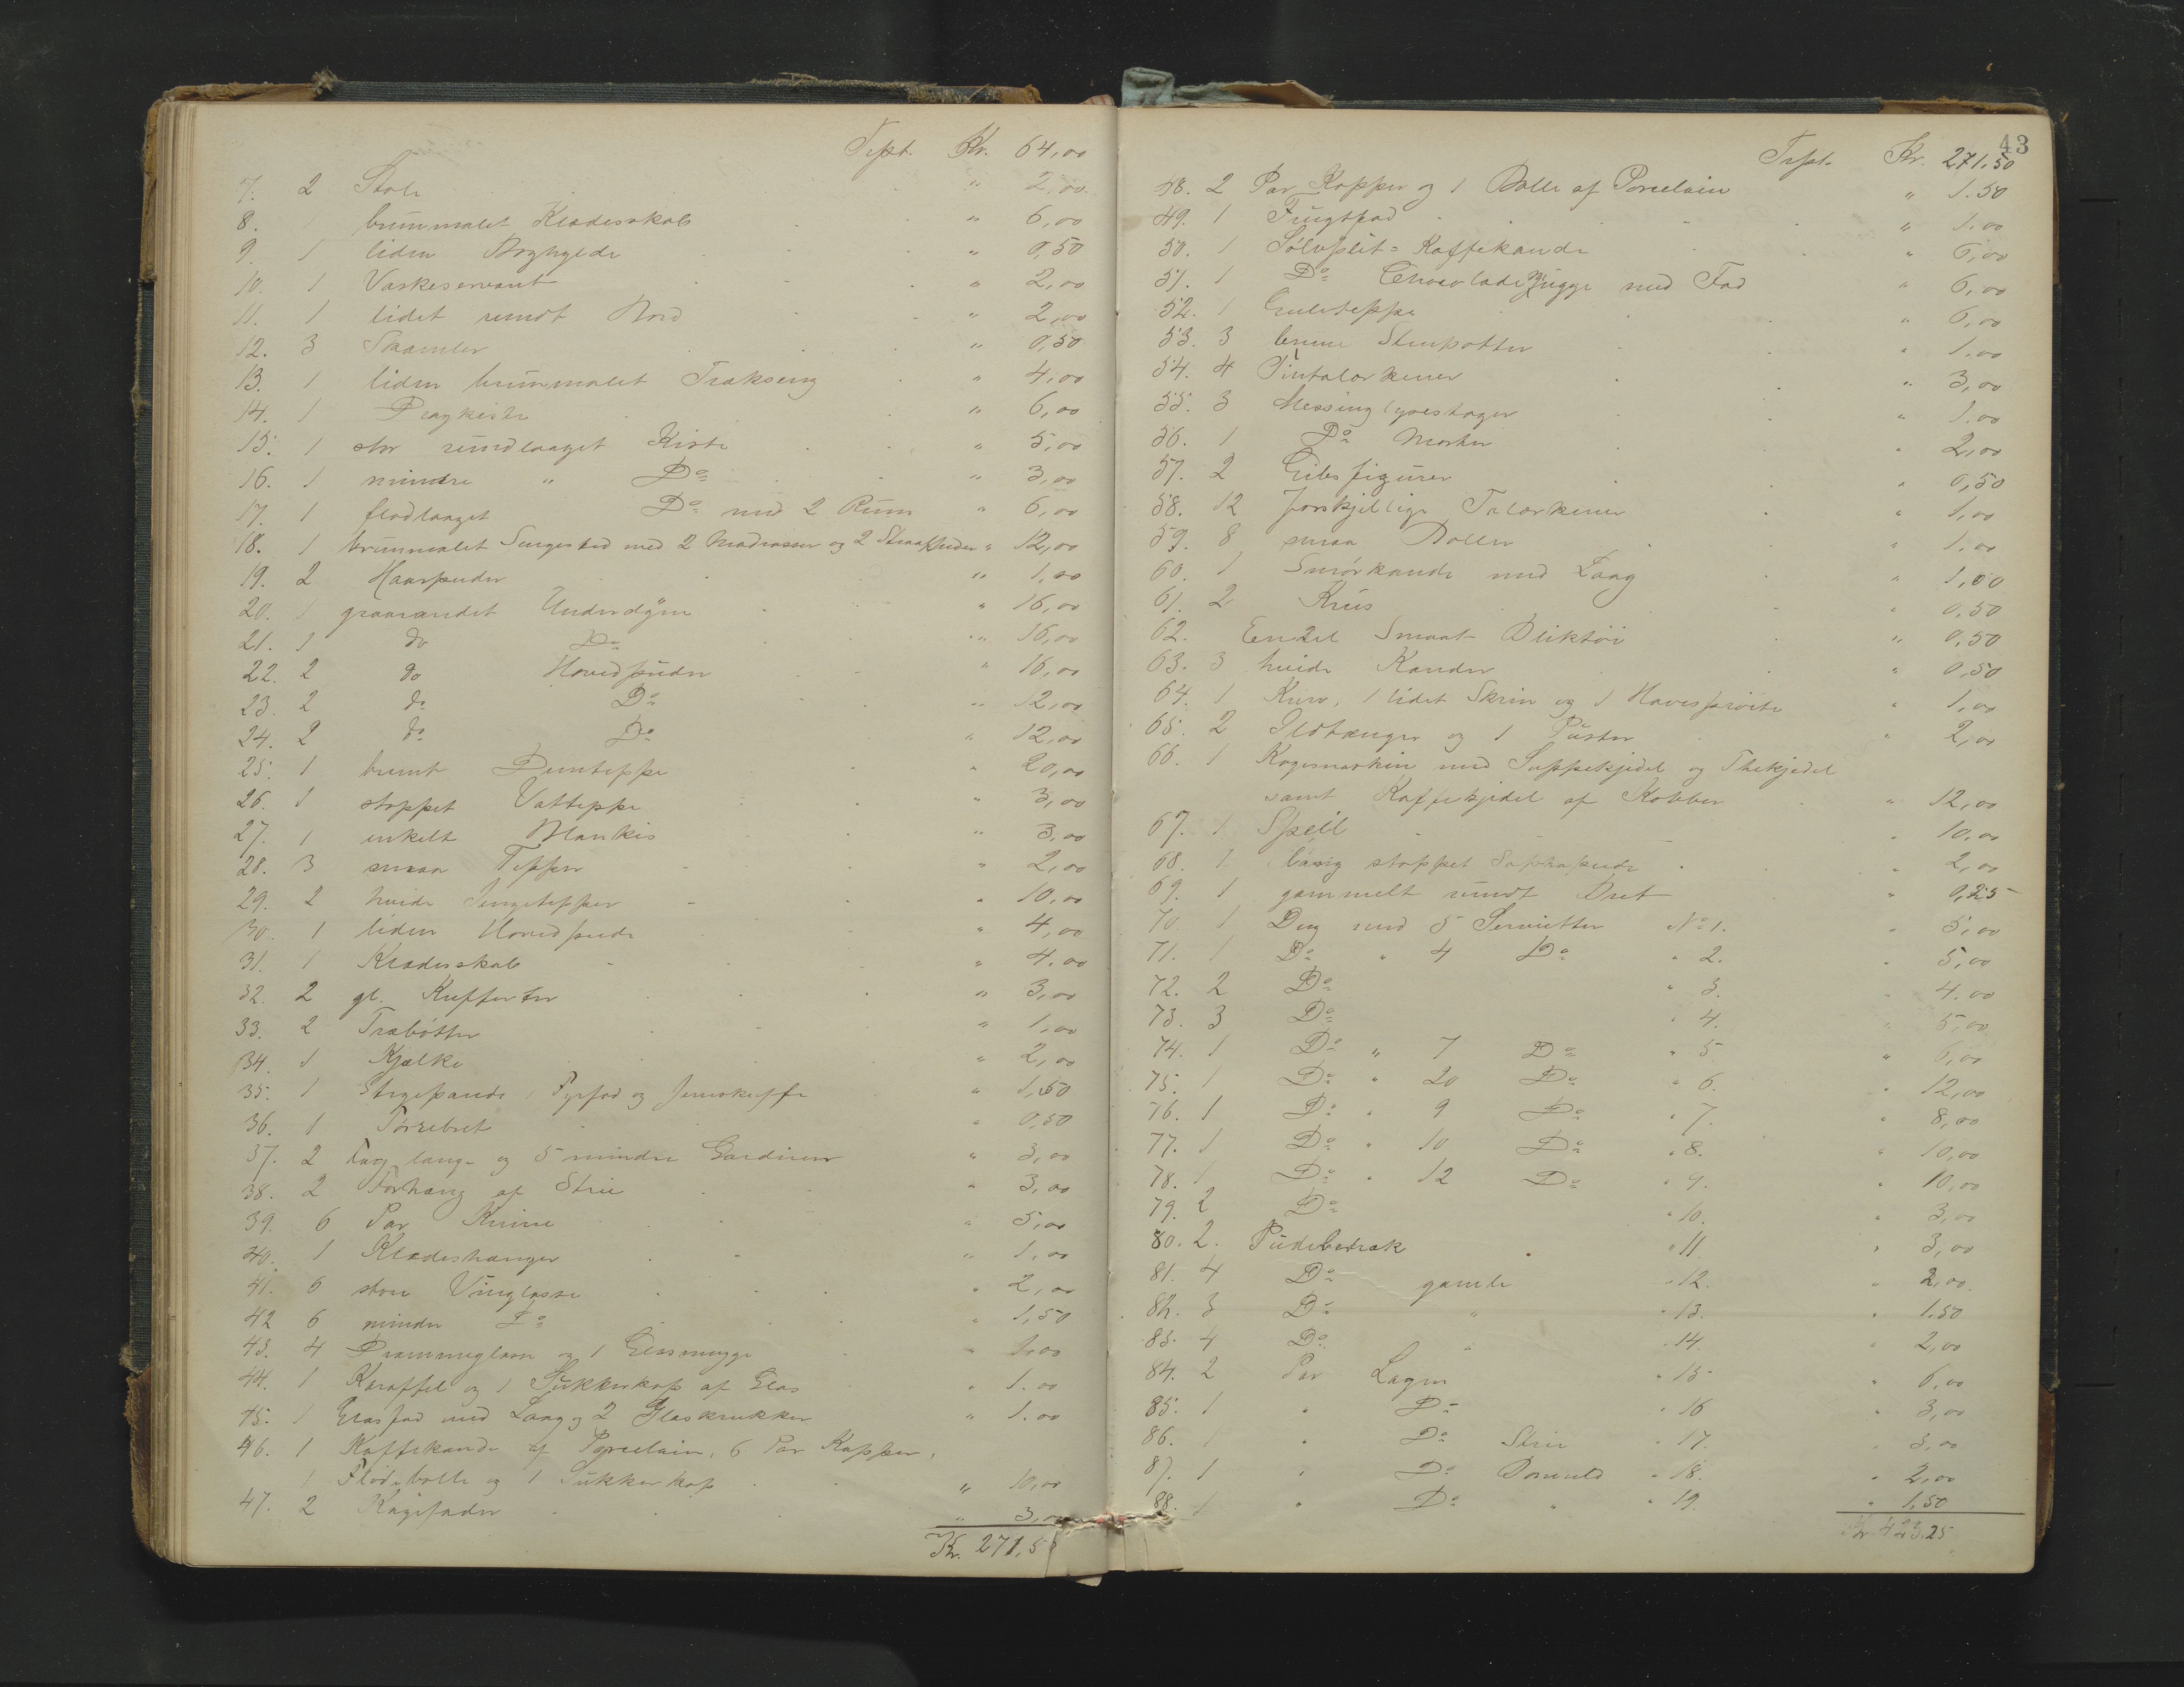 Trspt. Kr. 64,00
7. 2 Stole " 2,00
8. 1 brunmalet Klædesskab " 6,00
9. 1 liden Boghylde " 0,50
10. 1 Vaskeservant " 2,00
11. 1 lidet rundt Bord " 2,00
12. 3 Skamler " 0,50
13. 1 liden brunmalet Trækseng " 4,00
14. 1 Dragkiste " 6,00
15. 1 stor rundlaaget Kiste " 5,00
16. 1 mindre " Do " 3,00
17. 1 fladlaaget Do med 2 Rum " 6,00
18. 1 brunmalet Sengested med 2 Madrasser og 2 Straapuder " 12,00
19. 2 Haarpuder " 1,00
20. 1 graarandet Underdyne " 16,00
21. 1 do Do " 16,00
22. 2 do Hovedpuder " 16,00
23. 2 do Do " 12,00
24. 2 do Do " 12,00
25. 1 brunt Dunteppe " 20,00
26. 1 stoppet Vatteppe " 3,00
27. 1 enkelt Blankis " 3,00
28. 3 smaa Tepper " 2,00
29. 2 hvide Sengetepper " 10,00
30. 1 liden Hovedpude " 4,00
31. 1 Klædesskab " 4.00
32. 2 gl. Kufferter " 3,00
33. 2 Træbøtter " 1,00
34. 1 Kjælke " 2,00
35. 1 Stegepande, Fyrfad og Jernskuffe " 1,50
36. 1 Tørrebret " 0,50
37. 2 Fag lange og 5 mindre Gardiner " 3,00
38. 2 Forhæng af Strie " 3,00
39. 6 Par Knive " 5,00
40. 1 Klædeshænger " 1,00
41. 6 store Vinglasse " 2,00
42 6 mindre Do " 1,50
43. 4 Drammeglasse og 1 Glasmugge " 1,00
44. 1 Karaffel og 1 Sukkerkop af Glas " 1.00
45. 1 Glasfad med Laag og 2 Glaskrukker " 1.00
46. 1 Kaffekande af Porcelain, 6 Par Kopper,
1 Flødebolle og 1 Sukkerkop " 10,00
47. 2 Kagefader " 3,00
Kr. 271,5
43
Trspt. Kr. 271,50
48. 2 Par Kopper og 1 Bolle af Porcelain " 1.50
49. 1 Frugtfad " 1.00
50. 1 Sølvplet=Kaffekande " 6,00
51. 1 Do Chocolademugge med Fad " 6,00
52. 1 Gulvteppe " 6,00
53. 3 brune Stenpotter " 1.00
54. 4 Tintalærkener " 3,00
55. 3 Messinglysestager " 1.00
56. 1 Do Morter " 2,00
57. 2 Gibsfigurer " 0,50
58. 12 forskjellige Talærkener " 1,00
59. 8 smaa Boller " 1.00
60. 1 Smørkande med Laag " 1,00
61. 2 Krus " 0.50
62. Endel Smaat Bliktøi " 0,50
63. 3 hvide Kander " 0,50
64. 1 Kurv, 1 lidet Skrin og 1 Havesprøite " 1,00
65. 2 Ildtænger og 1 Puster " 2,00
66. 1 Kogemaskin med Suppekjedel og Thekjedel
samt Kaffekjedel af Kobber " 12,00
67. 1 Speil " 10,00
68. 1 lang stoppet Sophapude " 2,00
69. 1 gammelt rundt Bret " 0,25
70. 1 Dug med 5 Servietter No 1. " 5,00
71. 1 Do " 4 Do " 2. " 5,00
72. 2 Do " 3. " 4.00
73. 3 Do " 4. " 5,00
74. 1 Do " 7 Do " 5 " 6,00
75. 1 Do " 20 Do " 6. " 12,00
76. 1 Do " 9 Do " 7. " 8,00
77. 1 Do " 10 Do " 8. " 10,00
78. 1 Do " 12 Do " 9. " 10,00
79. 2 Do " 10. " 3,00
80. 2. Pudebetræk " 11. " 3,00
81. 4 Do gamle " 12. " 2,00
82. 3 Do " " 13. " 1.50
83. 4 Do " " 14. " 2,00
84. 2 Par Lagen " 15 " 6,00
85. 1 " Do " 16 " 3,00
86. 1 " Do Strie " 17. " 3,00
87. 1 " Do Bomuld " 18. " 2,00
88. 1 " Do " " 19. " 1,50
Kr 423.25